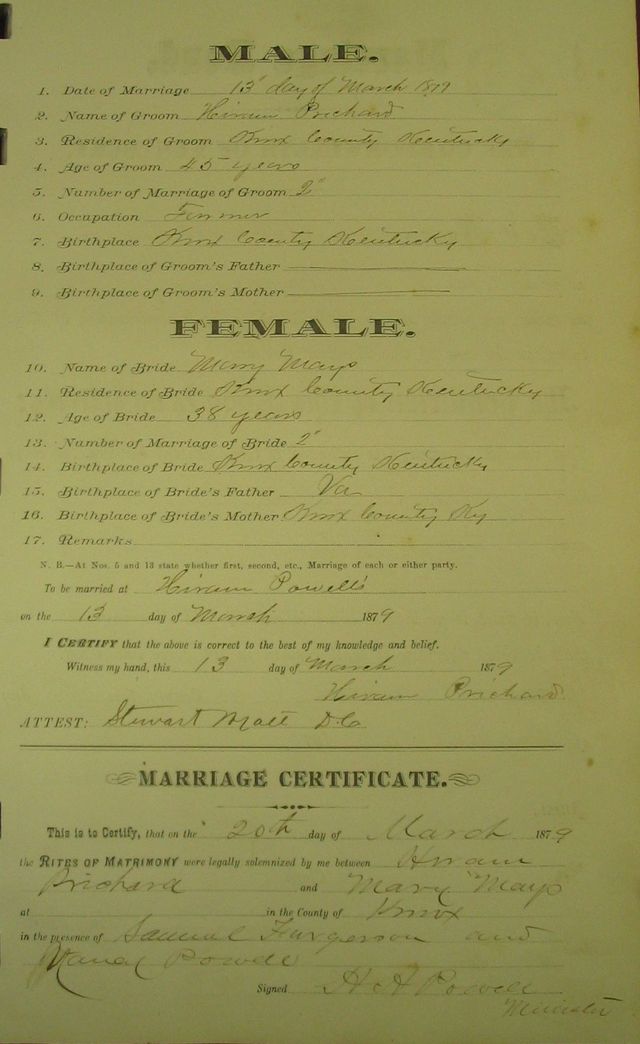 MALE.
1. Date of Marriage 13" day of March 1879
2. Name of Groom Hiram Prichard
3. Residence of Groom Knox County Kentucky
4. Age of Groom 45 years
5. Number of Marriage of Groom 2"
6. Occupation Farmer
7. Birthplace Knox County Kentucky
8. Birthplace of Groom's Father
9. Birthplace of Groom's Mother
FEMALE.
10. Name of Bride Mary Mays
11. Residence of Bride Knox County Kentucky
12. Age of Bride 38 years
13. Number of Marriage of Bride 2"
14. Birthplace of Bride Knox County Kentucky
15. Birthplace of Bride's Father Va
16. Birthplace of Bride's Mother Knox County Ky
17. Remarks
N. B.—At Nos. 5 and 13 state whether first, second, etc., Marriage of each or either party.
To be married at Hiram Powell's
on the 13 day of March 1879
I CERTIFY that the above is correct to the best of my knowledge and belief.
Witness my hand, this 13 day of March 1879
Hiram Prichard
ATTEST: Stewart D.C.
MARRIAGE CERTIFICATE.
This is to Certify, that on the 20th day of March 1879
the RITES OF MATRIMONY were legally solemnized by me between Hiram
Prichard and Mary Mays
at in the County of Knox
in the presence of Samuel Furgerson and
Powell
Signed H A Powell
Minister